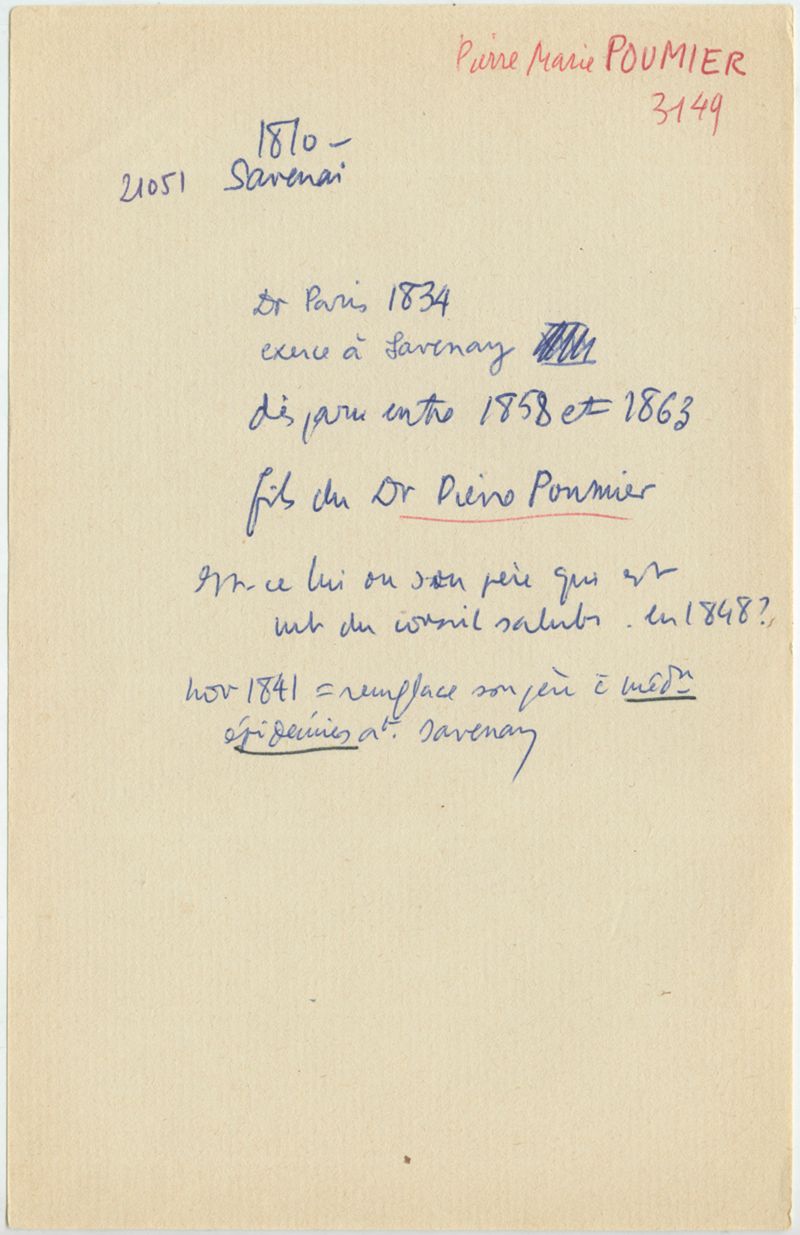 Pierre Marie POUMIER
3149
1810 -
21051 Savenai
Dr Paris 1834
exerce à Savenay
disparu entre 1858 et 1863
fils du Dr Pierre Poumier
Est-ce lui ou son père qui est
mb du conseil salubr. en 1848?
nov 1841 = remplace son père c̄ médn
épidémies at. Savenay